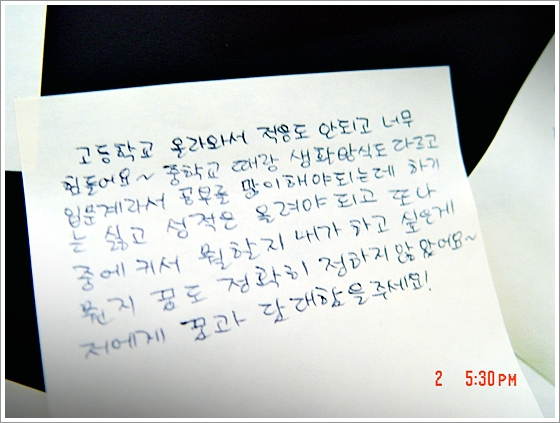 고등학교 올라와서 적응도 안되고 너무
힘들어요~ 중학교 때랑 생활방식도 다르고
입문계라서 공부를 많이해야되는데 하기
는 싫고 성적은 올려야 되고 또 나
중에 커서 뭘할지 내가 하고 싶은게
뭔지 꿈도 정확히 정하지 않았어요~
저에게 꿈과 담대함을주세요!
2 5:30PM